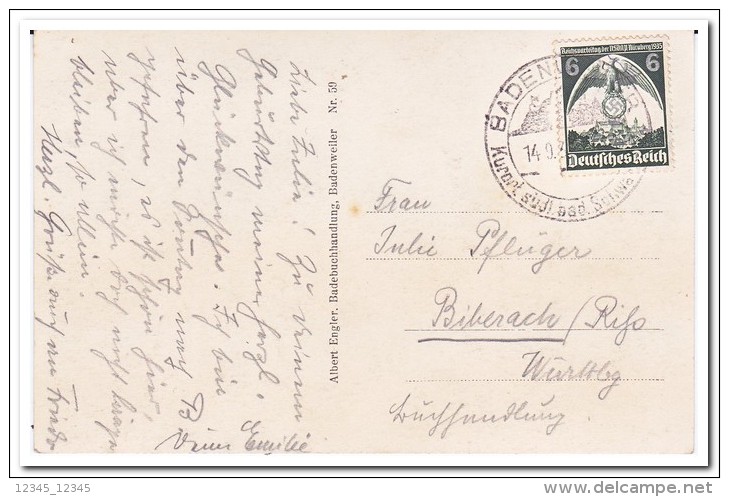 Liebe Julie! Zu Deinem
Geburtstag meine herzl.
Glückwünsche. Ich bin
über den Sonntag nach B
gefahren, es ist schön hier,
aber ich möchte doch nicht länger
bleiben, so allein.
Herzl. Grüße auch an Frieda
Deine Emilie
Albert Engler, Badebuchhandlung, Badenweiler Nr. 59
Reichsparteitag der NSDAP Nürnberg 1935
6 6
Deutsches Reich
BADEN
14.9.
Kurort südl bad. Schwa
Frau
Julie Pflüger
Biberach/Riß
Württbg
Buchhandlung
12345_12345
delcampe.net